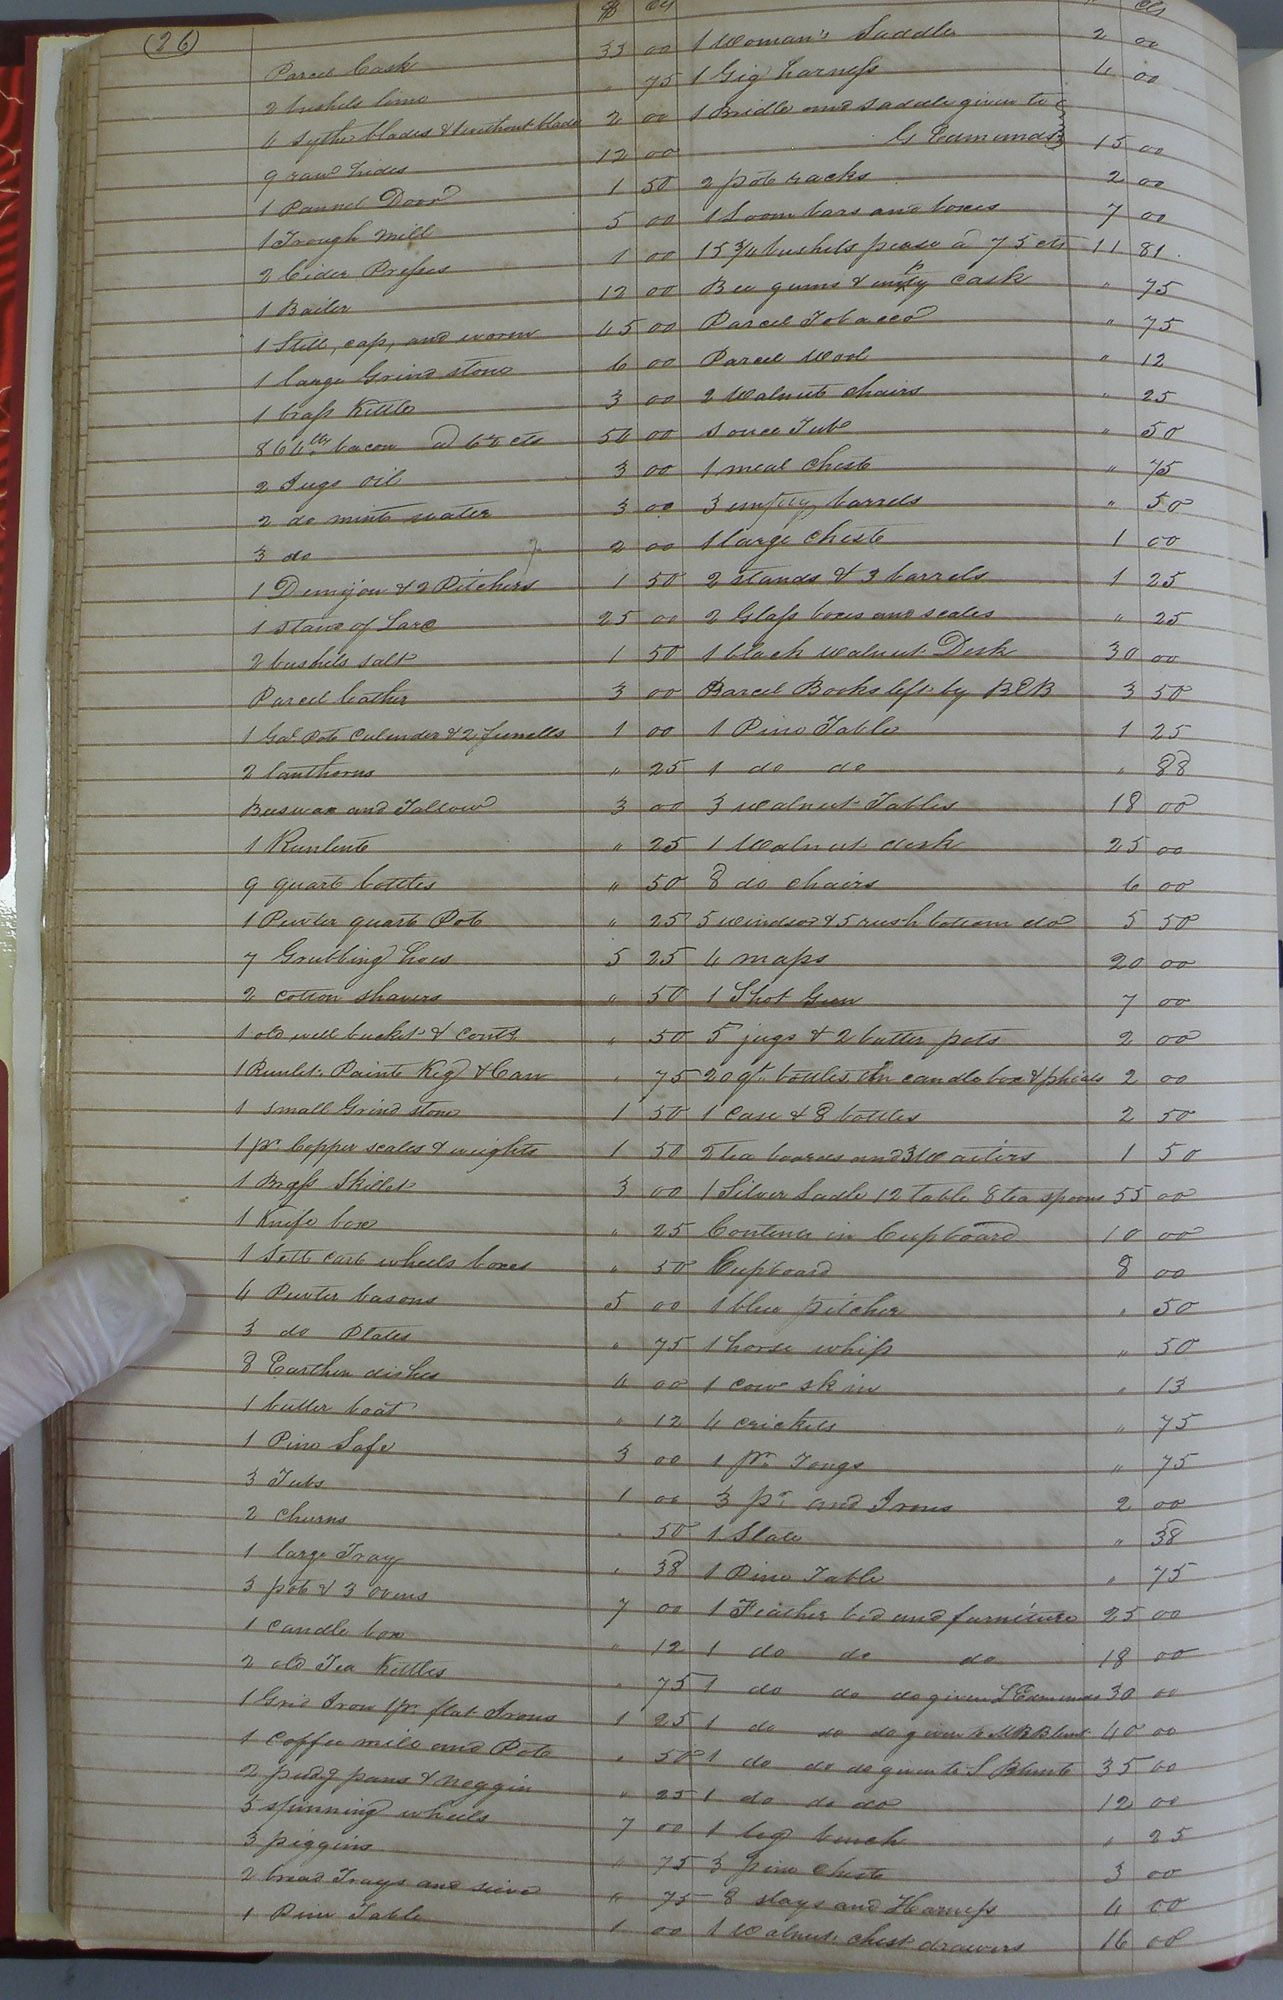 (26)
$ cts
Parcel Cask 33 00
2 bushels lime " 75
4 sythe blades & 1 without blade 2 00
9 raw hides 12 00
1 Pannel Door 1 50
1 Trough Mill 5 00
2 Cider Presses 1 00
1 Boiler 12 00
1 Still, cap, and worm 45 00
1 large Grind stone 6 00
1 brass Kettle 3 00
864 lbs bacon @ cts 50 00
2 Jugs oil 3 00
2 do mint water 3 00
3 do 2 00
1 Demijon & 2 Pitchers 1 50
1 stand of Lard 25 00
2 bushels salt 1 50
Parcel leather 3 00
1 Gal Pot Culender & 2 funnells 1 00
2 lanthorns " 25
Beeswax and Tallow 3 00
1 Runlent " 25
9 quart bottles " 50
1 Pewter quart Pot " 25
7 Grubbing hoes 5 25
2 cotton shavers " 50
1 old well bucket & " 50
1 Runlet Paint Keg & Can " 75
1 small Grind stone 1 50
1 pr Copper scales & weights 1 50
1 Brass Skillet 3 00
1 Knife box " 25
1 Sett cart wheels boxes " 50
4 Pewter basons 5 00
3 do Plates " 75
8 Earthen dishes 4 00
1 butter boat " 12
1 Pine Safe 3 00
3 Tubs 1 00
2 Churns " 50
1 large Tray " 38
3 pots & 3 ovens 7 00
1 candle box " 12
2 old Tea Kettles " 75
1 Grid Iron 1 pr flat Irons 1 25
1 Coffee mill and Pot " 50
2 pudg pans & noggin " 25
5 spinning wheels 7 00
3 piggins " 75
2 bread Trays and sieve " 75
1 Pine Table 1 00
" cts
1 Woman's Saddle 2 00
1 Gig harness 4 00
1 Bridle and saddle given to
G Edmunds 15 00
2 pot racks 2 00
1 Loom bars and boxes 7 00
15 3/4 bushels pease @ 75 cts 11.81.
Bee gums & empty cask " 75
Parcel Tobacco " 75
Parcel Wool " 12
2 Walnut chairs " 25
souce Tub " 50
1 meal Chest " 75
3 empty barrels " 50
1 large Chest 1 00
2 stands & 3 barrels 1 25
2 Glass boxes and scales " 25
1 black walnut Desk 30 00
Parcel Books left by BEB 3 50
1 Pine Table 1 25
1 do do " 88
3 walnut Tables 18 00
1 Walnut desk 25 00
8 do chairs 6 00
5 windsor & 5 rush bottom do 5 50
4 maps 20 00
1 Shot Gun 7 00
5 jugs & 2 butter pots 2 00
20 qt. bottles candle box & phials 2 00
1 Case & 8 bottles 2 50
2 tea boards and 3 Waiters 1 50
1 Silver Ladle 12 table 8 tea spoons 55 00
Contents in Cupboard 10 00
Cupboard 8 00
1 blue pitcher " 50
1 horse whip " 50
1 cow skin " 13
4 crickets " 75
1 pr Tongs " 75
3 pr and Irons 2 00
1 Slate " 38
1 Pine Table " 75
1 Feather bed and furniture 25 00
1 do do do 18 00
1 do do do given L Edmunds 30 00
1 do do do given to M B Blunt 40 00
1 do do do given to S Blunt 35 00
1 do do do 12 00
1 leg bench " 25
3 pine Chests 3 00
8 slays and Harness 4 00
1 Walnut chest drawers 16 00